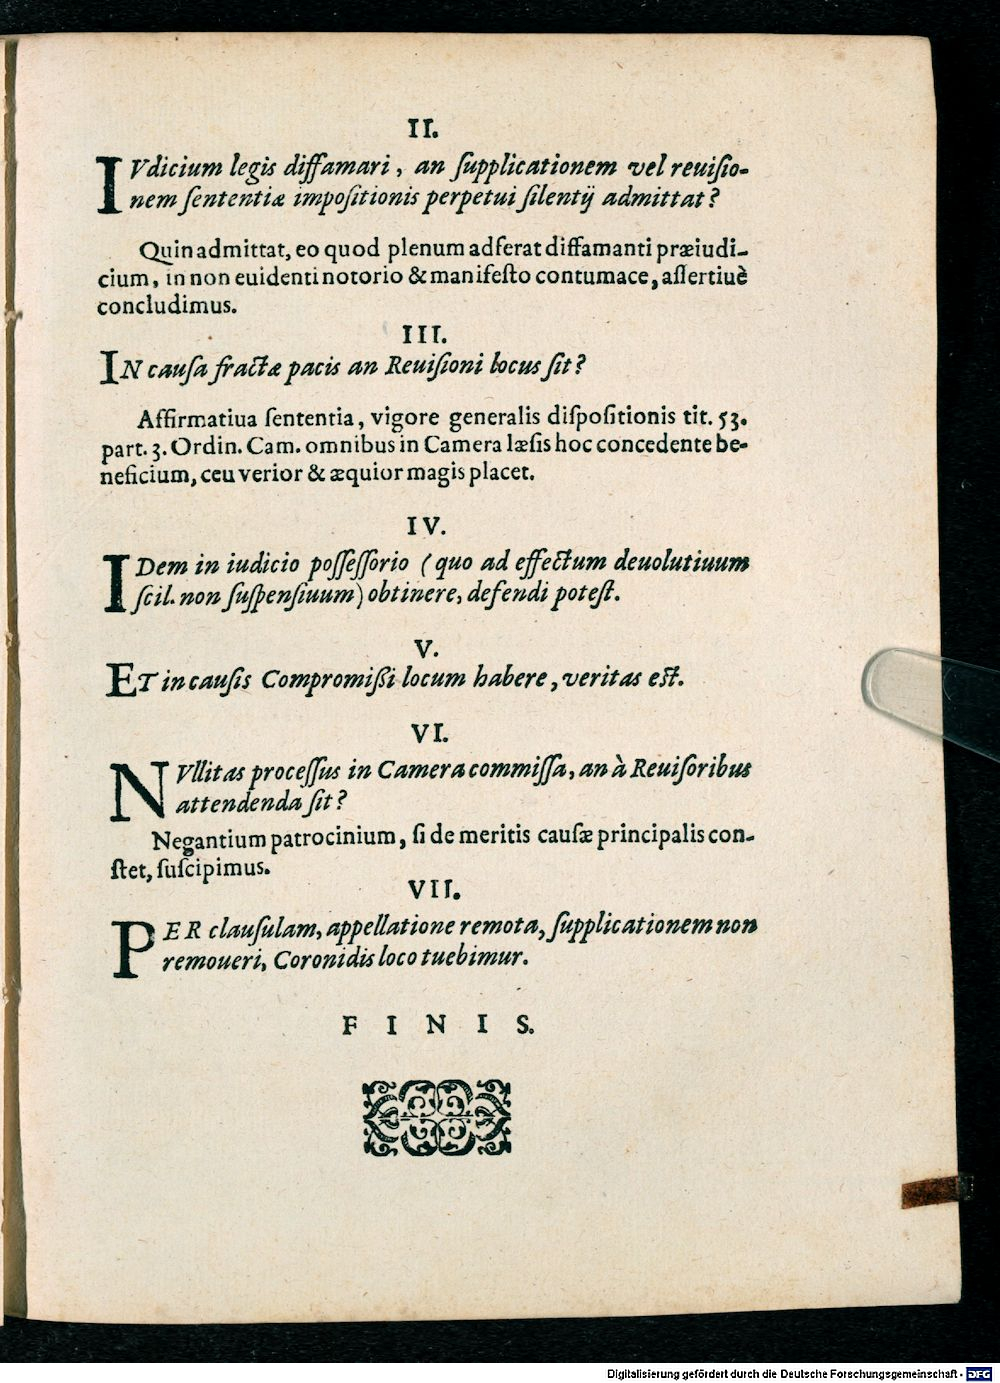 II.
IVdicium legis diffamari, an ſupplicationem vel reuiſio-
nem ſententiæ impoſitionis perpetui ſilentij admittat?
Quin admittat, eo quod plenum adferat diffamanti præiudi-
cium, in non euidenti notorio & manifeſto contumace, aſſertiuè
concludimus.
III.
IN cauſa fractæ pacis an Reuiſioni locus ſit?
Affirmatiua ſententia, vigore generalis diſpoſitionis tit. 53.
part. 3. Ordin. Cam. omnibus in Camera læſis hoc concedente be-
neficium, ceu verior & æquior magis placet.
IV.
IDem in iudicio poſſeſſorio (quo ad effectum deuolutiuum
ſcil. non ſuſpenſiuum) obtinere, defendi poteſt.
V.
ET in cauſis Compromißi locum habere, veritas eſt.
VI.
NVllitas proceſſus in Camera commiſſa, an à Reuiſoribus
attendenda ſit?
Negantium patrocinium, ſi de meritis cauſæ principalis con-
ſtet, ſuſcipimus.
VII.
PER clauſulam, appellatione remota, ſupplicationem non
remoueri, Coronidis loco tuebimur.
F I N I S.
Digitalisierung gefördert durch die Deutsche Forschungsgemeinschaft - DFG